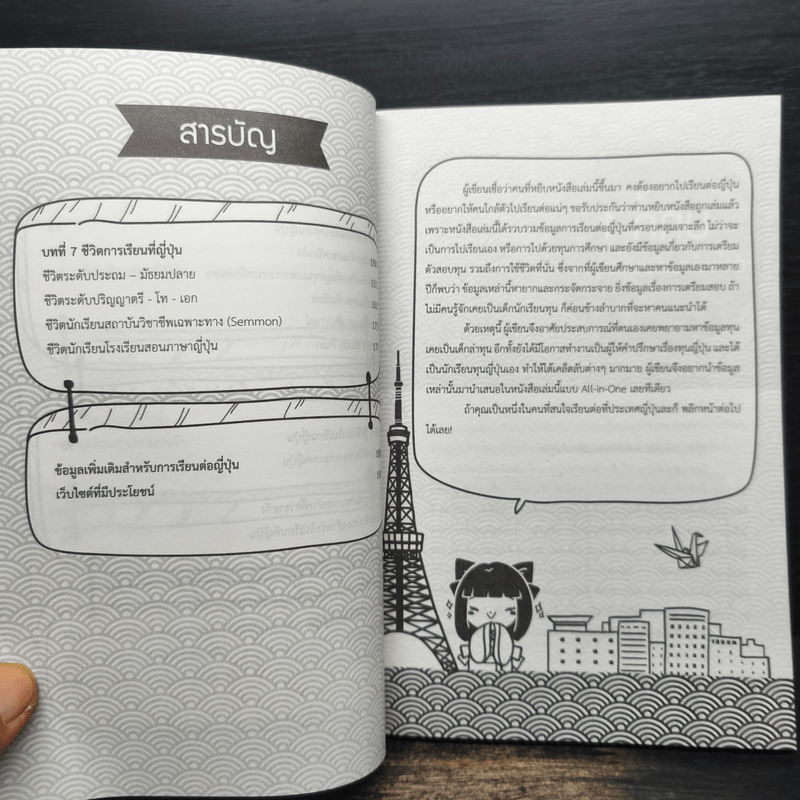 สารบัญ
บทที่ 7 ชีวิตการเรียนที่ญี่ปุ่น
ชีวิตระดับประถม – มัธยมปลาย
ชีวิตระดับปริญญาตรี - โท - เอก
ชีวิตนักเรียนสถาบันวิชาชีพเฉพาะทาง (Semmon)
ชีวิตนักเรียนโรงเรียนสอนภาษาญี่ปุ่น
ข้อมูลเพิ่มเติมสำหรับการเรียนต่อญี่ปุ่น
เว็บไซต์ที่มีประโยชน์
ผู้เขียนเชื่อว่าคนที่หยิบหนังสือเล่มนี้ขึ้นมา คงต้องอยากไปเรียนต่อญี่ปุ่น
หรืออยากให้คนใกล้ตัวไปเรียนต่อแน่ๆ ขอรับประกันว่าท่านหยิบหนังสือถูกเล่มแล้ว
เพราะหนังสือเล่มนี้ได้รวบรวมข้อมูลการเรียนต่อญี่ปุ่นที่ครอบคลุมเจาะลึก ไม่ว่าจะ
เป็นการไปเรียนเอง หรือการไปด้วยทุนการศึกษา และยังมีข้อมูลเกี่ยวกับการเตรียม
ตัวสอบทุน รวมถึงการใช้ชีวิตที่นั่น ซึ่งจากที่ผู้เขียนศึกษาและหาข้อมูลเองมาหลาย
ปีก็พบว่า ข้อมูลเหล่านี้หายากและกระจัดกระจาย ยิ่งข้อมูลเรื่องการเตรียมสอบ ถ้า
ไม่มีคนรู้จักเคยเป็นเด็กนักเรียนทุน ก็ค่อนข้างลำบากที่จะหาคนแนะนำได้
ด้วยเหตุนี้ ผู้เขียนจึงอาศัยประสบการณ์ที่ตนเองเคยพยายามหาข้อมูลทุน
เคยเป็นเด็กล่าทุน อีกทั้งยังได้มีโอกาสทำงานเป็นผู้ให้คำปรึกษาเรื่องทุนญี่ปุ่น และได้
เป็นนักเรียนทุนญี่ปุ่นเอง ทำให้ได้เคล็ดลับต่างๆ มากมาย ผู้เขียนจึงอยากนำข้อมูล
เหล่านั้นมานำเสนอในหนังสือเล่มนี้แบบ All-in-One เลยทีเดียว
ถ้าคุณเป็นหนึ่งในคนที่สนใจเรียนต่อที่ประเทศญี่ปุ่นละก็ พลิกหน้าต่อไป
ได้เลย!